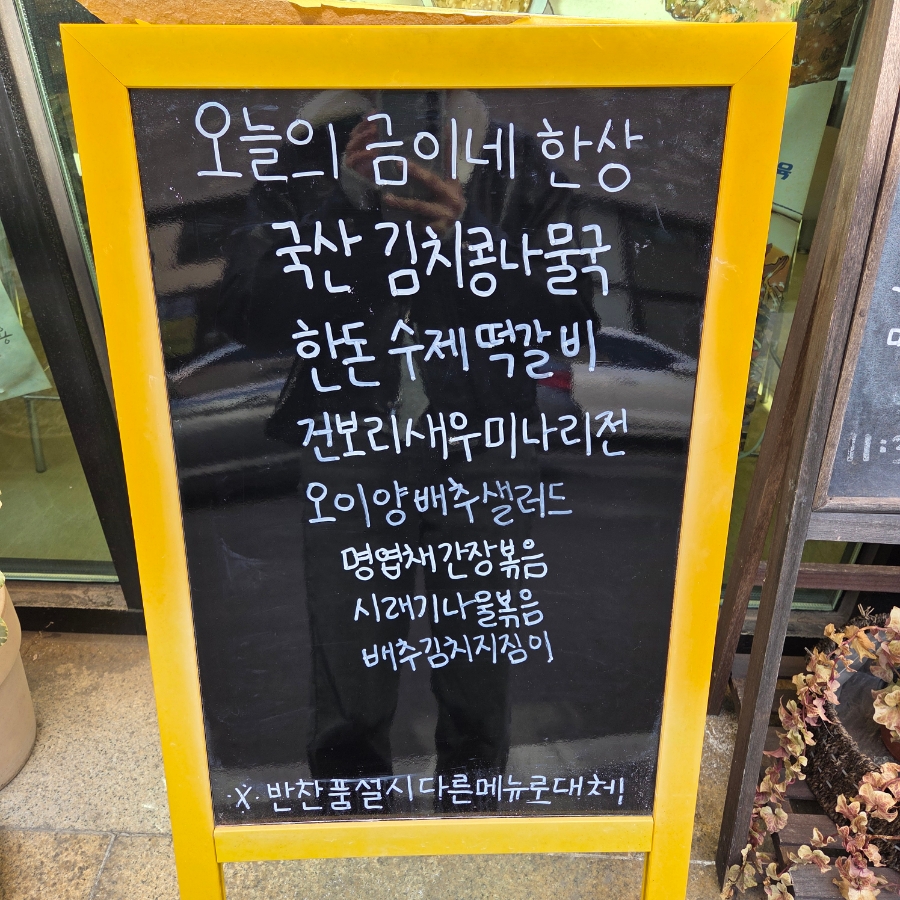 오늘의 금이네 한상
국산 김치콩나물국
한돈 수제 떡갈비
건보리새우미나리전
오이양배추샐러드
명엽채간장볶음
시래기나물볶음
배추김치지짐이
※ 반찬품절시다른메뉴로대체!